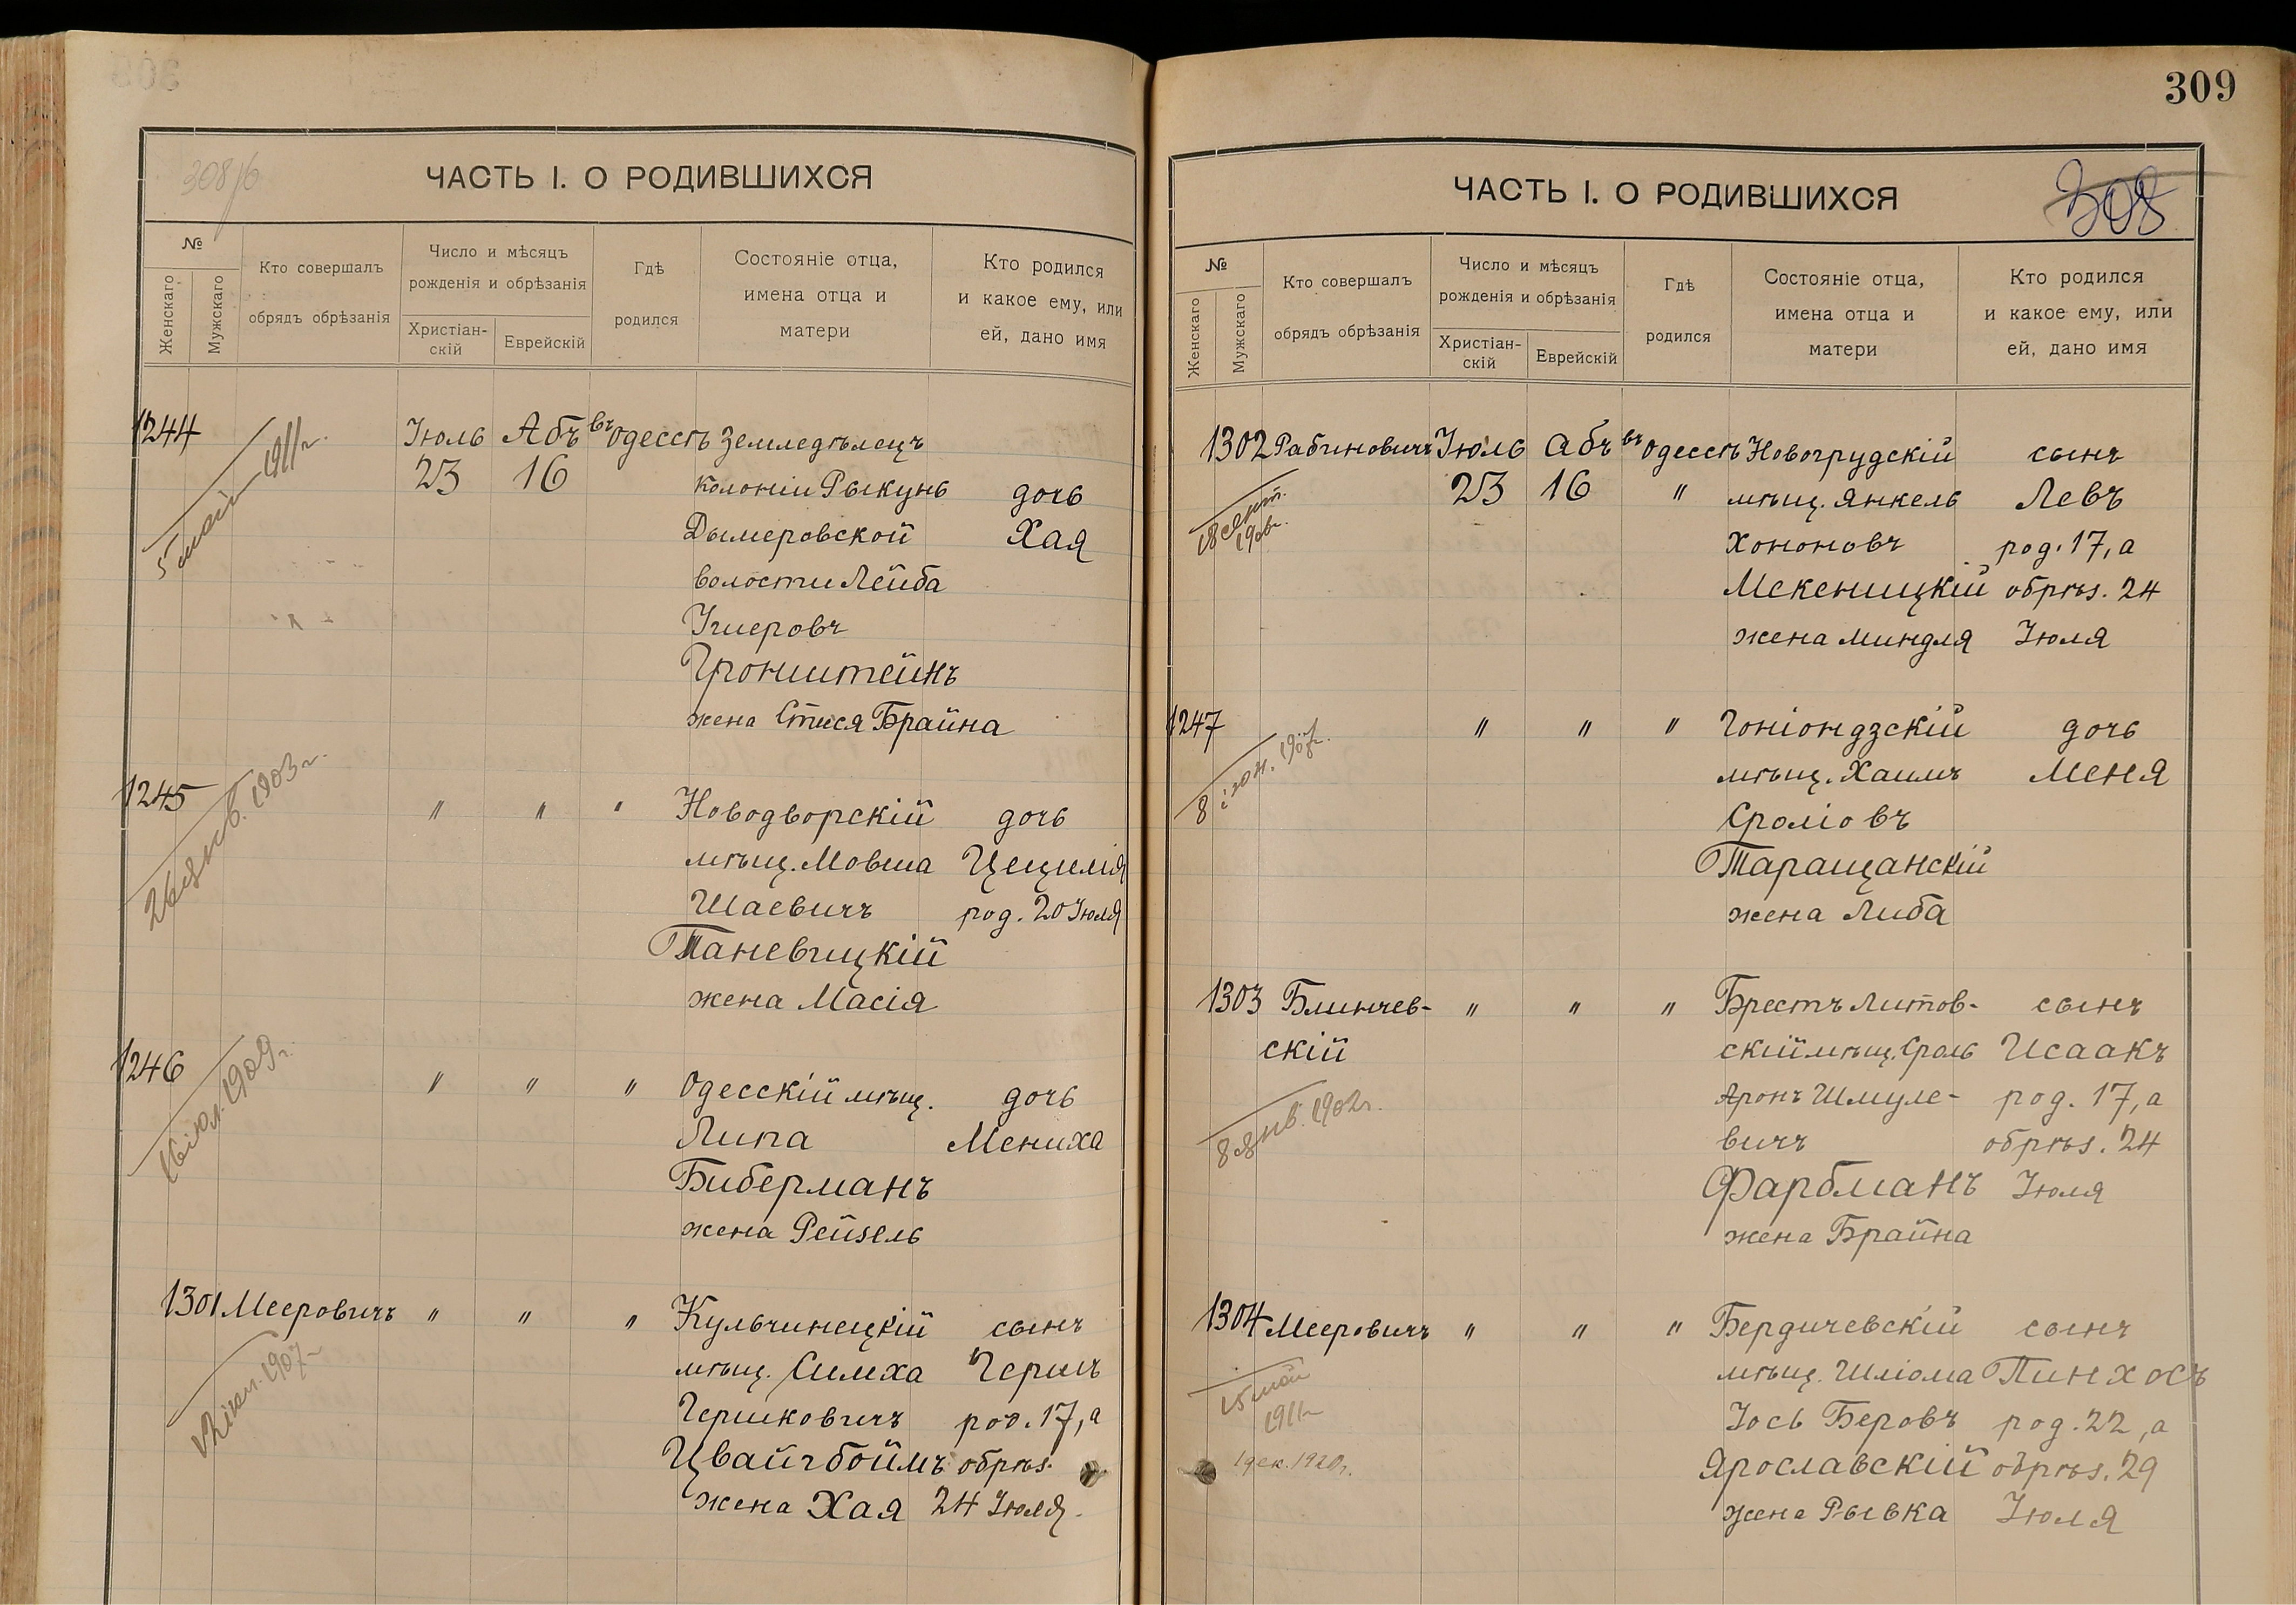 309
308/б
ЧАСТЬ I. О РОДИВШИХСЯ
№
Женскаго
Мужскаго
Кто совершалъ
обрядъ обрѣзанія
Число и мѣсяцъ
рожденія и обрѣзанія
Христіан-
скій
Еврейскій
Гдѣ
родился
Состояніе отца,
имена отца и
матери
Кто родился
и какое ему, или
ей, дано имя
1244 Іюль Абъ въ Одессѣ Земледѣлецъ
5 мая 1911г.
23 16 колоніи Рыкунь дочь
Дымеровской Хая
волости Лейба
Гронштейнъ
жена Стися Брайна
1245 " " " Новодворскій дочь
26 янв. 1903г.
мѣщ. Мовша Цецилія
Шаевичъ род. 20 Іюля
Таневицкій
жена Масія
1246 " " " Одесскій мѣщ. дочь
16 іюл. 1909г.
Липа Мениха
Биберманъ
жена Рейзель
1301 Мееровичъ " " " Кульчинецкій сынъ
1907
мѣщ. Симха Гершъ
Гершковичъ род. 17, а
Цвайгбоймъ обрѣз.
жена Хая 24 Іюля.
308
ЧАСТЬ I. О РОДИВШИХСЯ
№
Женскаго
Мужскаго
Кто совершалъ
обрядъ обрѣзанія
Число и мѣсяцъ
рожденія и обрѣзанія
Христіан-
скій
Еврейскій
Гдѣ
родился
Состояніе отца,
имена отца и
матери
Кто родился
и какое ему, или
ей, дано имя
1302 Рабиновичъ Іюль Абъ въ Одессѣ Новогрудскій сынъ
23 16 " мѣщ. Янкель Левъ
Хононовъ род. 17, а
Мекеницкій обрѣз. 24
жена Миндля Іюля
1247 " " " Гоніондзскій дочь
мѣщ. Хаимъ Меня
Сроліовъ
Таращанскій
жена Либа
1303 Блинчев- " " " Брестъ Литов- сынъ
скій скій мѣщ. Сроль Исаакъ
8 янв. 1902г.
Аронъ Шмуле- род. 17, а
вичъ обрѣз. 24
Фарбманъ Іюля
жена Брайна
1304 Мееровичъ " " " Бердичевскій сынъ
15 мая
1911г
мѣщ. Шліома Пинхосъ
Іось Беровъ род. 22, а
1 дек. 1920г.
Ярославскій обрѣз. 29
жена Рывка Іюля